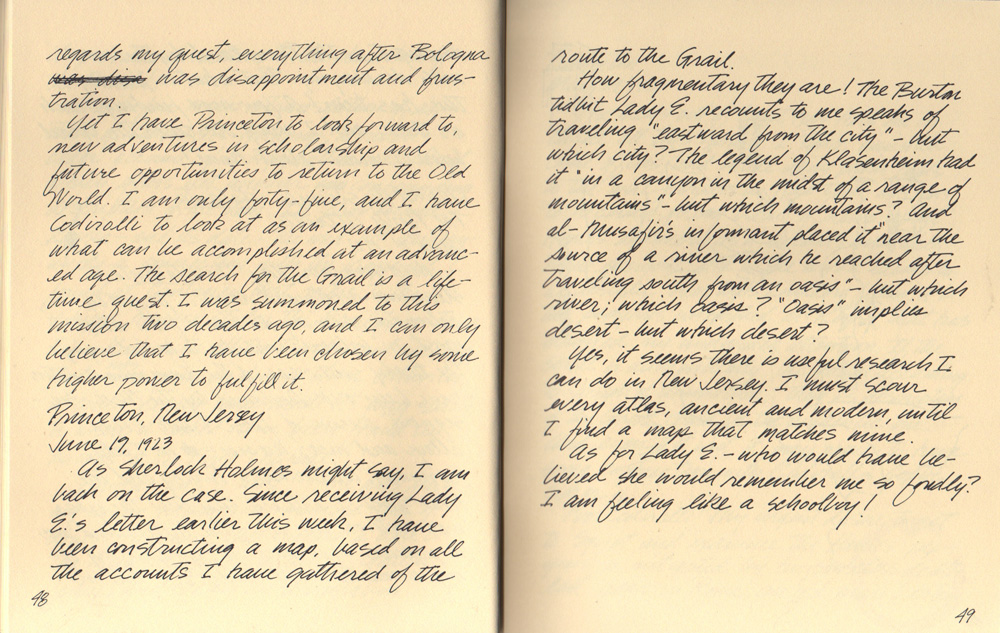 regards my quest, everything after Bologna
was dis was disappointment and frus-
tration.
Yet I have Princeton to look forward to,
new adventures in scholarship and
future opportunities to return to the Old
World. I am only forty-five, and I have
Codirolli to look at as an example of
what can be accomplished at an advanc-
ed age. The search for the Grail is a life-
time quest. I was summoned to this
mission two decades ago, and I can only
believe that I have been chosen by some
higher power to fulfill it.
Princeton, New Jersey
June 19, 1923
As Sherlock Holmes might say, I am
back on the case. Since receiving Lady
E.'s letter earlier this week, I have
been constructing a map, based on all
the accounts I have gathered of the
48
route to the Grail.
How fragmentary they are! The Burton
tidbit Lady E. recounts to me speaks of
traveling "eastward from the city" - but
which city? The legend of Klasenheim had
it "in a canyon in the midst of a range of
mountains" - but which mountains? And
al-Musafir's informant placed it "near the
source of a river which he reached after
traveling south from an oasis" - but which
river; which oasis? "Oasis" implies
desert - but which desert?
Yes, it seems there is useful research I
can do in New Jersey. I must scour
every atlas, ancient and modern, until
I find a map that matches mine.
As for Lady E. - who would have be-
lieved she would remember me so fondly?
I am feeling like a schoolboy!
49